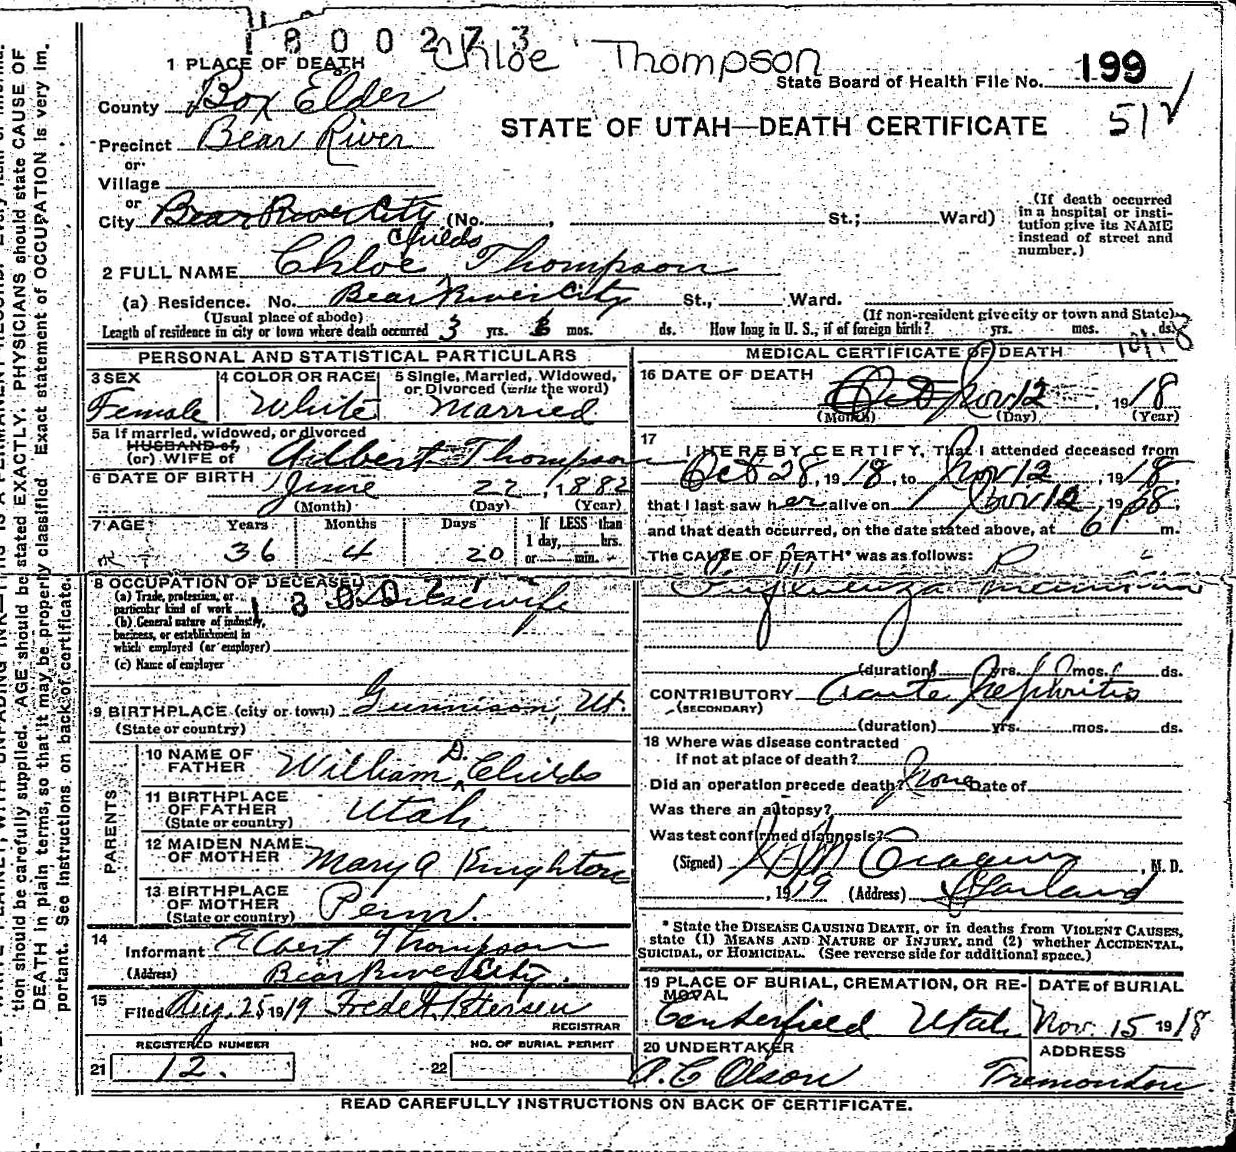 1800273
Chloe Thompson
1 PLACE OF DEATH
State Board of Health File No. 199
County Box Elder
STATE OF UTAH—DEATH CERTIFICATE
512
Precinct Bear River
or
Village
or
City Bear River City (No. , St.; Ward)
(If death occurred in a hospital or institution give its NAME instead of street and number.)
Childs
2 FULL NAME Chloe Thompson
(a) Residence. No. Bear River City St., Ward.
(Usual place of abode) (If non-resident give city or town and State)
Length of residence in city or town where death occurred 3 yrs. mos. ds. How long in U. S., if of foreign birth? yrs. mos. ds.
PERSONAL AND STATISTICAL PARTICULARS
3 SEX 4 COLOR OR RACE 5 Single, Married, Widowed, or Divorced (write the word)
Female White Married
5a If married, widowed, or divorced
HUSBAND of
(or) WIFE of Thompson
6 DATE OF BIRTH June 22, 1882
(Month) (Day) (Year)
7 AGE Years Months Days If LESS than
1 day, hrs.
36 4 20 or min.
8 OCCUPATION OF DECEASED
(a) Trade, profession, or
particular kind of work Housewife
(b) General nature of industry,
business, or establishment in
which employed (or employer)
(c) Name of employer
9 BIRTHPLACE (city or town) Gunnison, Ut.
(State or country)
PARENTS
10 NAME OF
FATHER William D. Childs
11 BIRTHPLACE
OF FATHER Utah
(State or country)
12 MAIDEN NAME
OF MOTHER Mary A Knighton
13 BIRTHPLACE
OF MOTHER Penn.
(State or country)
14
Informant Elbert Thompson
(Address) Bear River City.
15
Filed Aug. 25 1919 Petersen
REGISTRAR
REGISTERED NUMBER NO. OF BURIAL PERMIT
21 12. 22
MEDICAL CERTIFICATE OF DEATH
16 DATE OF DEATH
Oct Nov 12, 1918
(Month) (Day) (Year)
17
I HEREBY CERTIFY, That I attended deceased from
Oct 28, 1918, to Nov 12, 1918,
that I last saw her alive on Nov 12, 1918,
and that death occurred, on the date stated above, at 6 P m.
The CAUSE OF DEATH* was as follows:
Influenza Pneumonia
(duration) yrs. mos. ds.
CONTRIBUTORY Acute Nephritis
(SECONDARY)
(duration) yrs. mos. ds.
18 Where was disease contracted
If not at place of death?
Did an operation precede death? None Date of
Was there an autopsy?
Was test confirmed diagnosis?
(Signed) , M. D.
, 1919 (Address) Garland
* State the DISEASE CAUSING DEATH, or in deaths from VIOLENT CAUSES,
state (1) MEANS AND NATURE OF INJURY, and (2) whether ACCIDENTAL,
SUICIDAL, or HOMICIDAL. (See reverse side for additional space.)
19 PLACE OF BURIAL, CREMATION, OR REMOVAL DATE of BURIAL
Centerfield Utah Nov. 15 1918
20 UNDERTAKER ADDRESS
A. C Olson Tremonton.
READ CAREFULLY INSTRUCTIONS ON BACK OF CERTIFICATE.
tion should be carefully supplied. AGE should be stated EXACTLY. PHYSICIANS should state CAUSE OF
DEATH in plain terms, so that it may be properly classified. Exact statement of OCCUPATION is very im-
portant. See instructions on back of certificate.